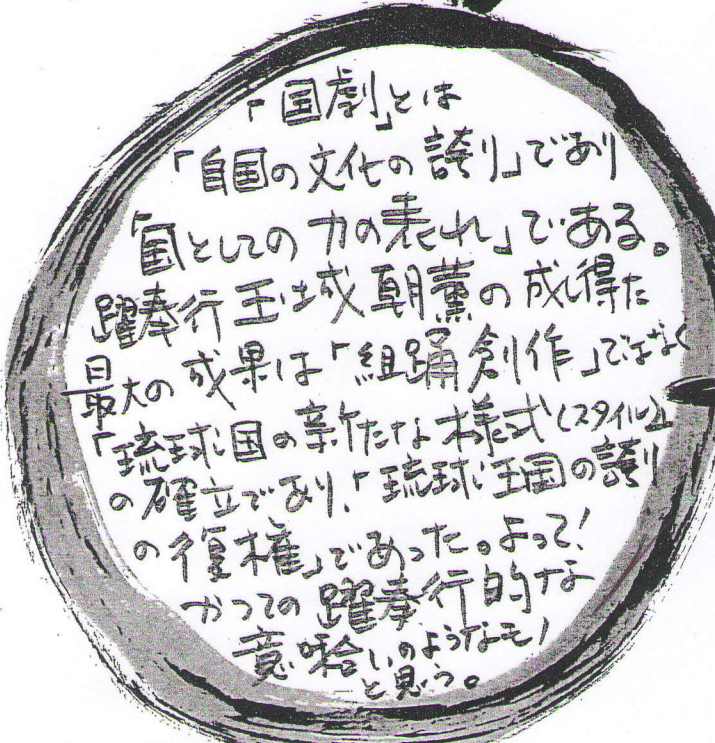 「国劇」とは
「自国の文化の誇り」であり
「国としての力の表れ」である。
躍奉行玉城朝薫の成し得た
最大の成果は「組踊創作」ではなく
「琉球国の新たな様式(スタイル)」
の確立であり、「琉球王国の誇り
の復権」であった。よって!
かつての躍奉行的な
意味合いのようなモノ
と思う。